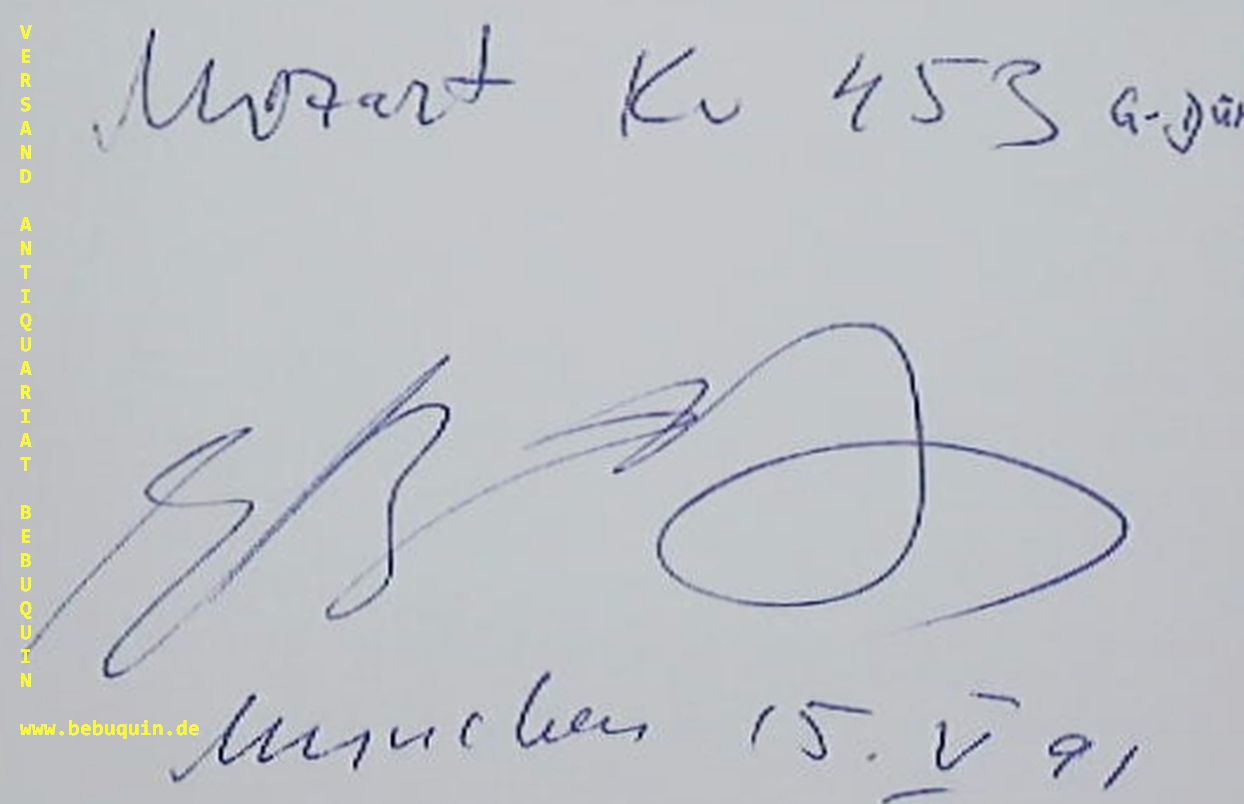 Mozart Kv 453 G-Dur
München 15. V 91
VERSAND ANTIQUARIAT BEBUQUIN
www.bebuquin.de